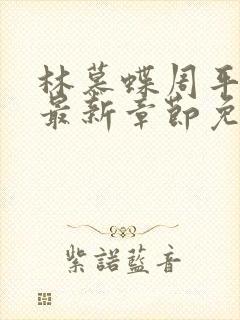 林慕蝶周平
最新章節免
紫諾藍音